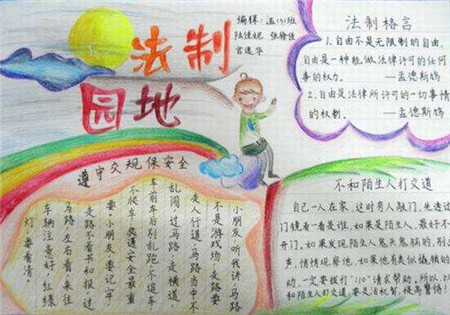 法制
园地
法制格言
1.自由不是无限制的自由,
自由是一种能做法律许可的任何
事的权力。——孟德斯鸠
2.自由是法律所许可的一切事情
的权利。——孟德斯鸠
遵守交规保安全
小朋友听我讲,马路
不是游戏场,走路要
走人行道,马路当中不
乱闯,过马路,走横道,
车前车后别乱跑,不追车
不爬车,交通安全最重
要。小朋友,要记牢
走路不看书和报,过
马路左右看,来往
车辆注意好,红绿
灯,要看清。
不和陌生人打交道
自己一人在家,这时有人敲门,先透过
门镜看一看是谁,如果是陌生人,最好不
开门,如果发现陌生人鬼鬼祟祟的,别出
声,悄悄观察他,如果他有类似撬锁的
动,一定要拨打"110"请求帮助。所以,
和陌生人打交道,要灵活机智,提高警惕。